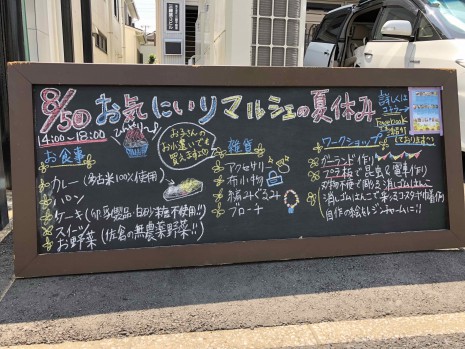 8/5(日) お気にいりマルシェの夏休み
14:00~18:00
ひんやり~♪
お子さんの
お小遣いでも
買えますよ
詳しくは
Facebook
お食事
カレー (多古米100%使用)
パン
ケーキ (卵・乳製品・白砂糖不使用!!)
スイーツ
お野菜 (佐倉の無農薬野菜!!)
雑貨
アクセサリー
布小物
編みぐるみ
ブローチ
ワークショップ
ガーランド作り
プラ板で昆虫&電車作り
刃物不使で彫る消しゴムはんこ
消しゴムはんこで作るコースター
自作の絵をレジンチャームに!!